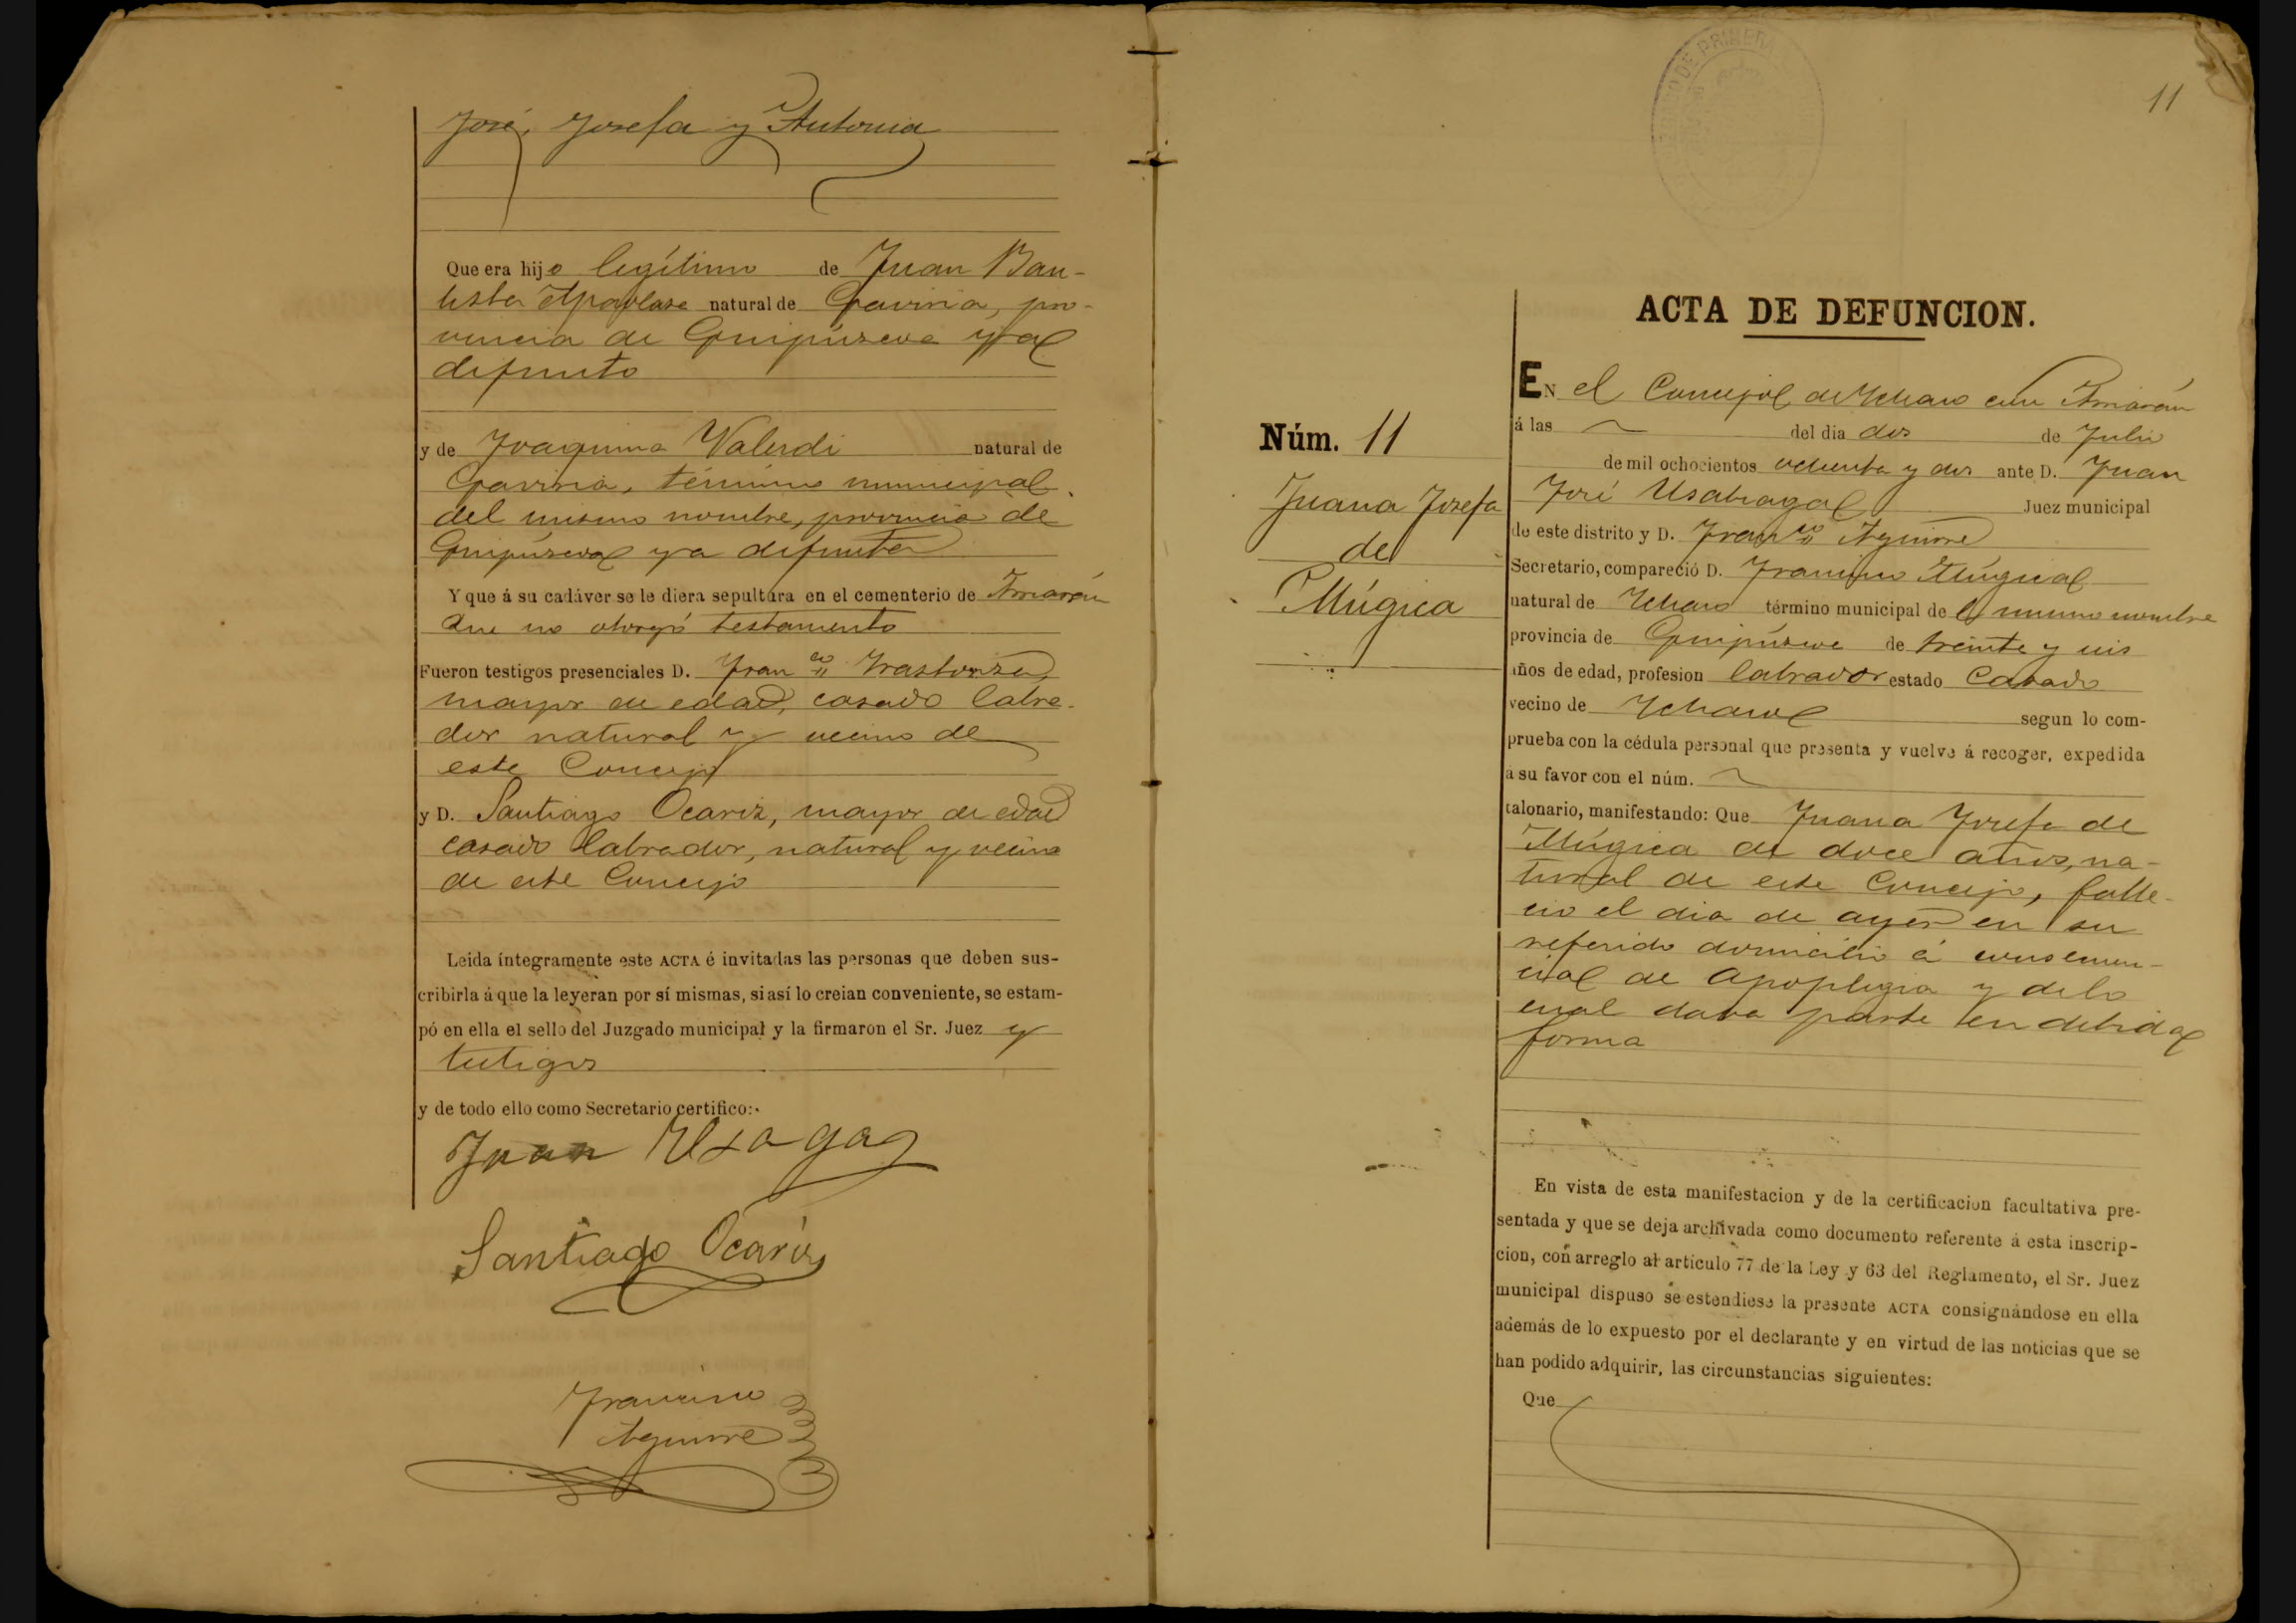 José, Josefa y Antonia
Que era hijo legítimo de Juan Bau-
tista natural de Gaviria, pro-
vincia de Guipúzcoa ya
difunto
y de Joaquina Valerdi natural de
Gaviria, término municipal
del mismo nombre, provincia de
Guipúzcoa ya difunta
Y que á su cadáver se le diera sepultura en el cementerio de Amarán
Que no otorgó testamento
Fueron testigos presenciales D. Franco Irastorza,
mayor de edad, casado labra-
dor natural y vecino de
este Concejo
y D. Santiago Ocariz, mayor de edad
casado labrador, natural y vecino
de este Concejo
Leida íntegramente este ACTA é invitadas las personas que deben sus-
cribirla á que la leyeran por sí mismas, si así lo creian conveniente, se estam-
pó en ella el sello del Juzgado municipal y la firmaron el Sr. Juez y
testigos
y de todo ello como Secretario certifico:
Juan Usagag
Santiago Ocariz
Francisco
Aguirre
JUZGADO DE PRIMERA
11
ACTA DE DEFUNCION.
Núm. 11
Juana Josefa
de
Múgica
EN el Concejo de Ichaso con Amarán
á las del dia dos de Julio
de mil ochocientos ochenta y dos ante D. Juan
José Usabiaga Juez municipal
de este distrito y D. Franco Aguirre
Secretario, compareció D. Francisco Múgica
natural de Ichaso término municipal de l mismo nombre
provincia de Guipúzcoa de treinta y seis
años de edad, profesion labrador estado Casado
vecino de Ichaso segun lo com-
prueba con la cédula personal que presenta y vuelve á recoger, expedida
á su favor con el núm.
talonario, manifestando: Que Juana Josefa de
Múgica de doce años, na-
tural de este Concejo, falle-
cio el dia de ayer en su
referido domicilio á consecuen-
cia de apoplegia y de lo
cual daba parte en debida
forma
En vista de esta manifestacion y de la certificacion facultativa pre-
sentada y que se deja archivada como documento referente á esta inscrip-
cion, con arreglo al artículo 77 de la Ley y 63 del Reglamento, el Sr. Juez
municipal dispuso se estendiese la presente ACTA consignándose en ella
además de lo expuesto por el declarante y en virtud de las noticias que se
han podido adquirir, las circunstancias siguientes:
Que